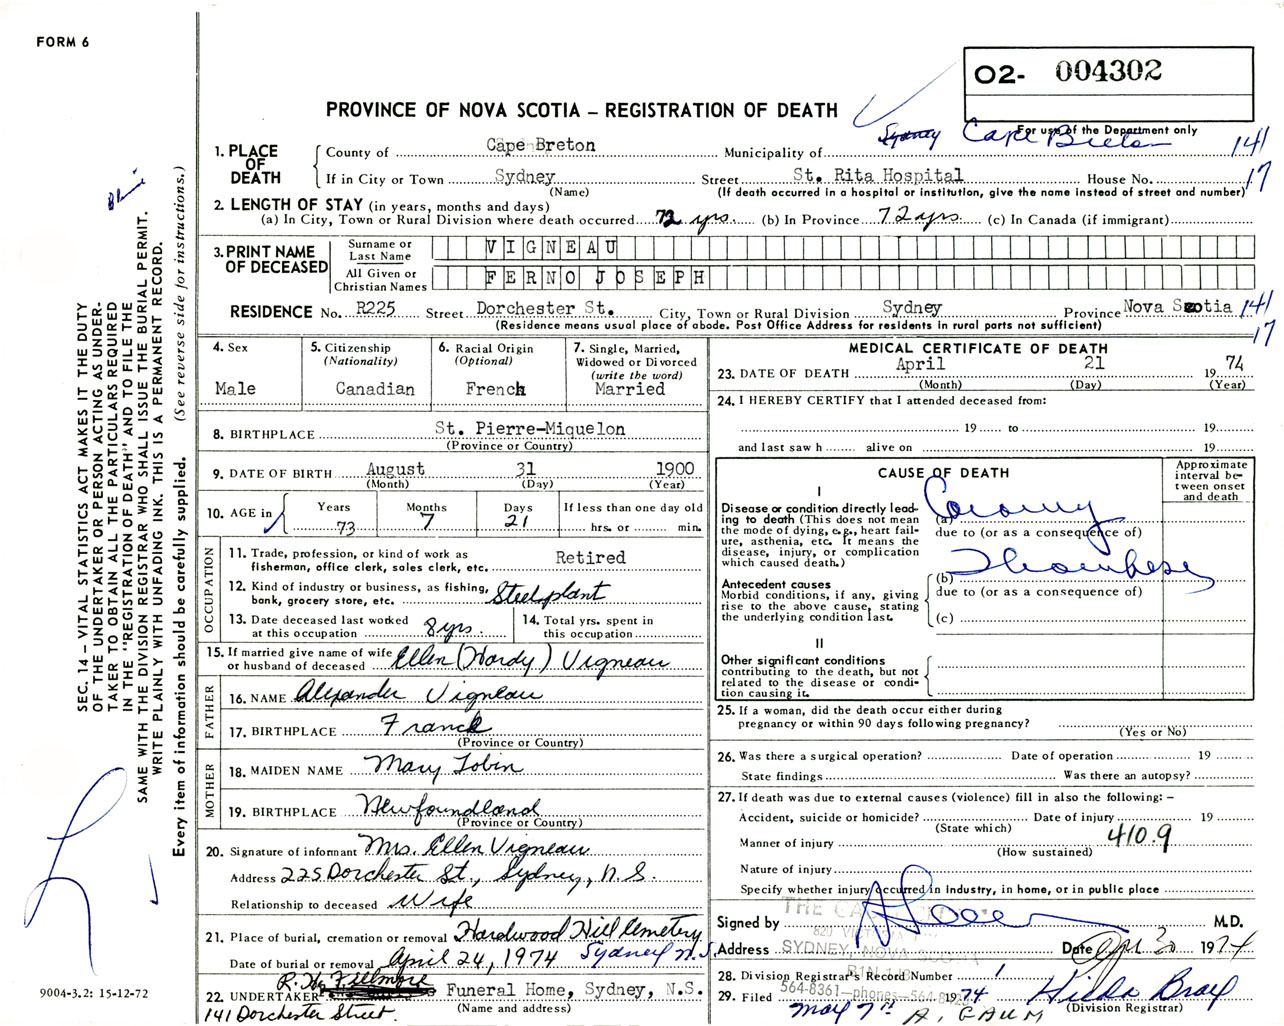 FORM 6
O2- 004302
PROVINCE OF NOVA SCOTIA – REGISTRATION OF DEATH
For use of the Department only
Sydney Cape Breton 141
1. PLACE OF DEATH
County of Cape Breton Municipality of
If in City or Town Sydney Street St. Rita Hospital House No. 17
(Name) (If death occurred in a hospital or institution, give the name instead of street and number)
2. LENGTH OF STAY (in years, months and days)
(a) In City, Town or Rural Division where death occurred 72 yrs. (b) In Province 72 yrs. (c) In Canada (if immigrant)
3. PRINT NAME OF DECEASED
Surname or Last Name VIGNEAU
All Given or Christian Names FERNO JOSEPH
RESIDENCE No. R225 Street Dorchester St. City, Town or Rural Division Sydney Province Nova Scotia 141
(Residence means usual place of abode. Post Office Address for residents in rural parts not sufficient) 17
4. Sex
Male
5. Citizenship
(Nationality)
Canadian
6. Racial Origin
(Optional)
French
7. Single, Married,
Widowed or Divorced
(write the word)
Married
8. BIRTHPLACE St. Pierre-Miquelon
(Province or Country)
9. DATE OF BIRTH August 31 1900
(Month) (Day) (Year)
10. AGE in
Years Months Days If less than one day old
73 7 21 hrs. or min.
OCCUPATION
11. Trade, profession, or kind of work as
fisherman, office clerk, sales clerk, etc. Retired
12. Kind of industry or business, as fishing,
bank, grocery store, etc. Steelsplant
13. Date deceased last worked
at this occupation 8 yrs.
14. Total yrs. spent in
this occupation
15. If married give name of wife
or husband of deceased Ellen (Hardy) Vigneau
FATHER
16. NAME Alexander Vigneau
17. BIRTHPLACE France
(Province or Country)
MOTHER
18. MAIDEN NAME Mary Tobin
19. BIRTHPLACE Newfoundland
(Province or Country)
20. Signature of informant Mrs. Ellen Vigneau
Address 225 Dorchester St., Sydney, N.S.
Relationship to deceased Wife
21. Place of burial, cremation or removal Hardwood Hill Cemetery
Date of burial or removal April 24, 1974 Sydney N.S.
R. H. Fillmore
22. UNDERTAKER Funeral Home, Sydney, N.S.
(Name and address)
141 Dorchester Street.
MEDICAL CERTIFICATE OF DEATH
23. DATE OF DEATH April 21 19 74
(Month) (Day) (Year)
24. I HEREBY CERTIFY that I attended deceased from:
19 to 19
and last saw h alive on 19
CAUSE OF DEATH
Approximate
interval be-
tween onset
and death
I
Disease or condition directly lead-
ing to death (This does not mean
the mode of dying, e.g., heart fail-
ure, asthenia, etc. It means the
disease, injury, or complication
which caused death.)
(a) Coronary
due to (or as a consequence of)
Antecedent causes
Morbid conditions, if any, giving
rise to the above cause, stating
the underlying condition last.
(b) Thrombosis
due to (or as a consequence of)
(c)
II
Other significant conditions
contributing to the death, but not
related to the disease or condi-
tion causing it.
25. If a woman, did the death occur either during
pregnancy or within 90 days following pregnancy?
(Yes or No)
26. Was there a surgical operation? Date of operation 19
State findings Was there an autopsy?
27. If death was due to external causes (violence) fill in also the following: –
Accident, suicide or homicide? Date of injury 19
(State which)
410.9
Manner of injury
(How sustained)
Nature of injury
Specify whether injury occurred in industry, in home, or in public place
Signed by M.D.
Address SYDNEY, NOVA SCOTIA Date Apr 30 1974
28. Division Registrar's Record Number 1
564-8361—phones—564-8
29. Filed May 7th 1974 Hilda Bray
(Division Registrar)
A. GAUM
SEC. 14 – VITAL STATISTICS ACT MAKES IT THE DUTY
OF THE UNDERTAKER OR PERSON ACTING AS UNDER-
TAKER TO OBTAIN ALL THE PARTICULARS REQUIRED
IN THE "REGISTRATION OF DEATH" AND TO FILE THE
SAME WITH THE DIVISION REGISTRAR WHO SHALL ISSUE THE BURIAL PERMIT.
WRITE PLAINLY WITH UNFADING INK. THIS IS A PERMANENT RECORD.
Every item of information should be carefully supplied. (See reverse side for instructions.)
9004-3.2: 15-12-72